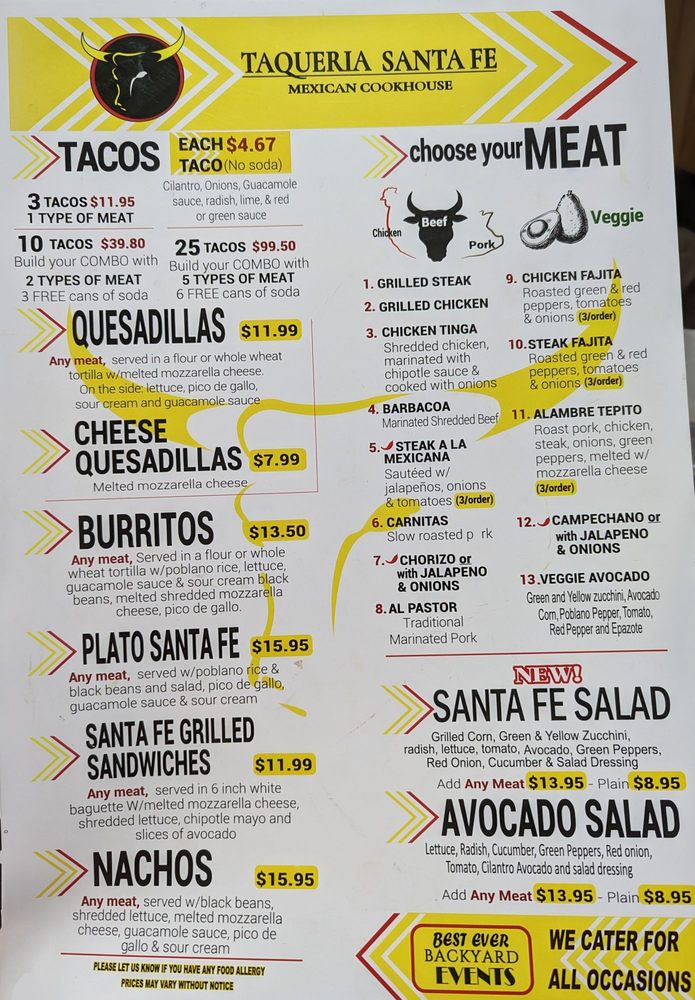 TAQUERIA SANTA FE
MEXICAN COOKHOUSE
TACOS
EACH $4.67
TACO (No soda)
Cilantro, Onions, Guacamole
sauce, radish, lime, & red
or green sauce
3 TACOS $11.95
1 TYPE OF MEAT
10 TACOS $39.80
Build your COMBO with
2 TYPES OF MEAT
3 FREE cans of soda
25 TACOS $99.50
Build your COMBO with
5 TYPES OF MEAT
6 FREE cans of soda
QUESADILLAS $11.99
Any meat, served in a flour or whole wheat
tortilla w/melted mozzarella cheese.
On the side: lettuce, pico de gallo,
sour cream and guacamole sauce
CHEESE
QUESADILLAS $7.99
Melted mozzarella cheese
BURRITOS $13.50
Any meat, Served in a flour or whole
wheat tortilla w/poblano rice, lettuce,
guacamole sauce & sour cream black
beans, melted shredded mozzarella
cheese, pico de gallo.
PLATO SANTA FE $15.95
Any meat, served w/poblano rice &
black beans and salad, pico de gallo,
guacamole sauce & sour cream
SANTA FE GRILLED
SANDWICHES $11.99
Any meat, served in 6 inch white
baguette W/melted mozzarella cheese,
shredded lettuce, chipotle mayo and
slices of avocado
NACHOS $15.95
Any meat, served w/black beans,
shredded lettuce, melted mozzarella
cheese, guacamole sauce, pico de
gallo & sour cream
PLEASE LET US KNOW IF YOU HAVE ANY FOOD ALLERGY
PRICES MAY VARY WITHOUT NOTICE
choose your MEAT
Chicken
Beef
Pork
Veggie
1. GRILLED STEAK
2. GRILLED CHICKEN
3. CHICKEN TINGA
Shredded chicken,
marinated with
chipotle sauce &
cooked with onions
4. BARBACOA
Marinated Shredded Beef
5. STEAK A LA
MEXICANA
Sautéed w/
jalapeños, onions
& tomatoes (3/order)
6. CARNITAS
Slow roasted p rk
7. CHORIZO or
with JALAPENO
& ONIONS
8. AL PASTOR
Traditional
Marinated Pork
9. CHICKEN FAJITA
Roasted green & red
peppers, tomatoes
& onions (3/order)
10. STEAK FAJITA
Roasted green & red
peppers, tomatoes
& onions (3/order)
11. ALAMBRE TEPITO
Roast pork, chicken,
steak, onions, green
peppers, melted w/
mozzarella cheese
(3/order)
12. CAMPECHANO or
with JALAPENO
& ONIONS
13. VEGGIE AVOCADO
Green and Yellow zucchini, Avocado
Corn, Poblano Pepper, Tomato,
Red Pepper and Epazote
NEW!
SANTA FE SALAD
Grilled Corn, Green & Yellow Zucchini,
radish, lettuce, tomato, Avocado, Green Peppers,
Red Onion, Cucumber & Salad Dressing
Add Any Meat $13.95 - Plain $8.95
AVOCADO SALAD
Lettuce, Radish, Cucumber, Green Peppers, Red onion,
Tomato, Cilantro Avocado and salad dressing
Add Any Meat $13.95 - Plain $8.95
BEST EVER
BACKYARD
EVENTS
WE CATER FOR
ALL OCCASIONS